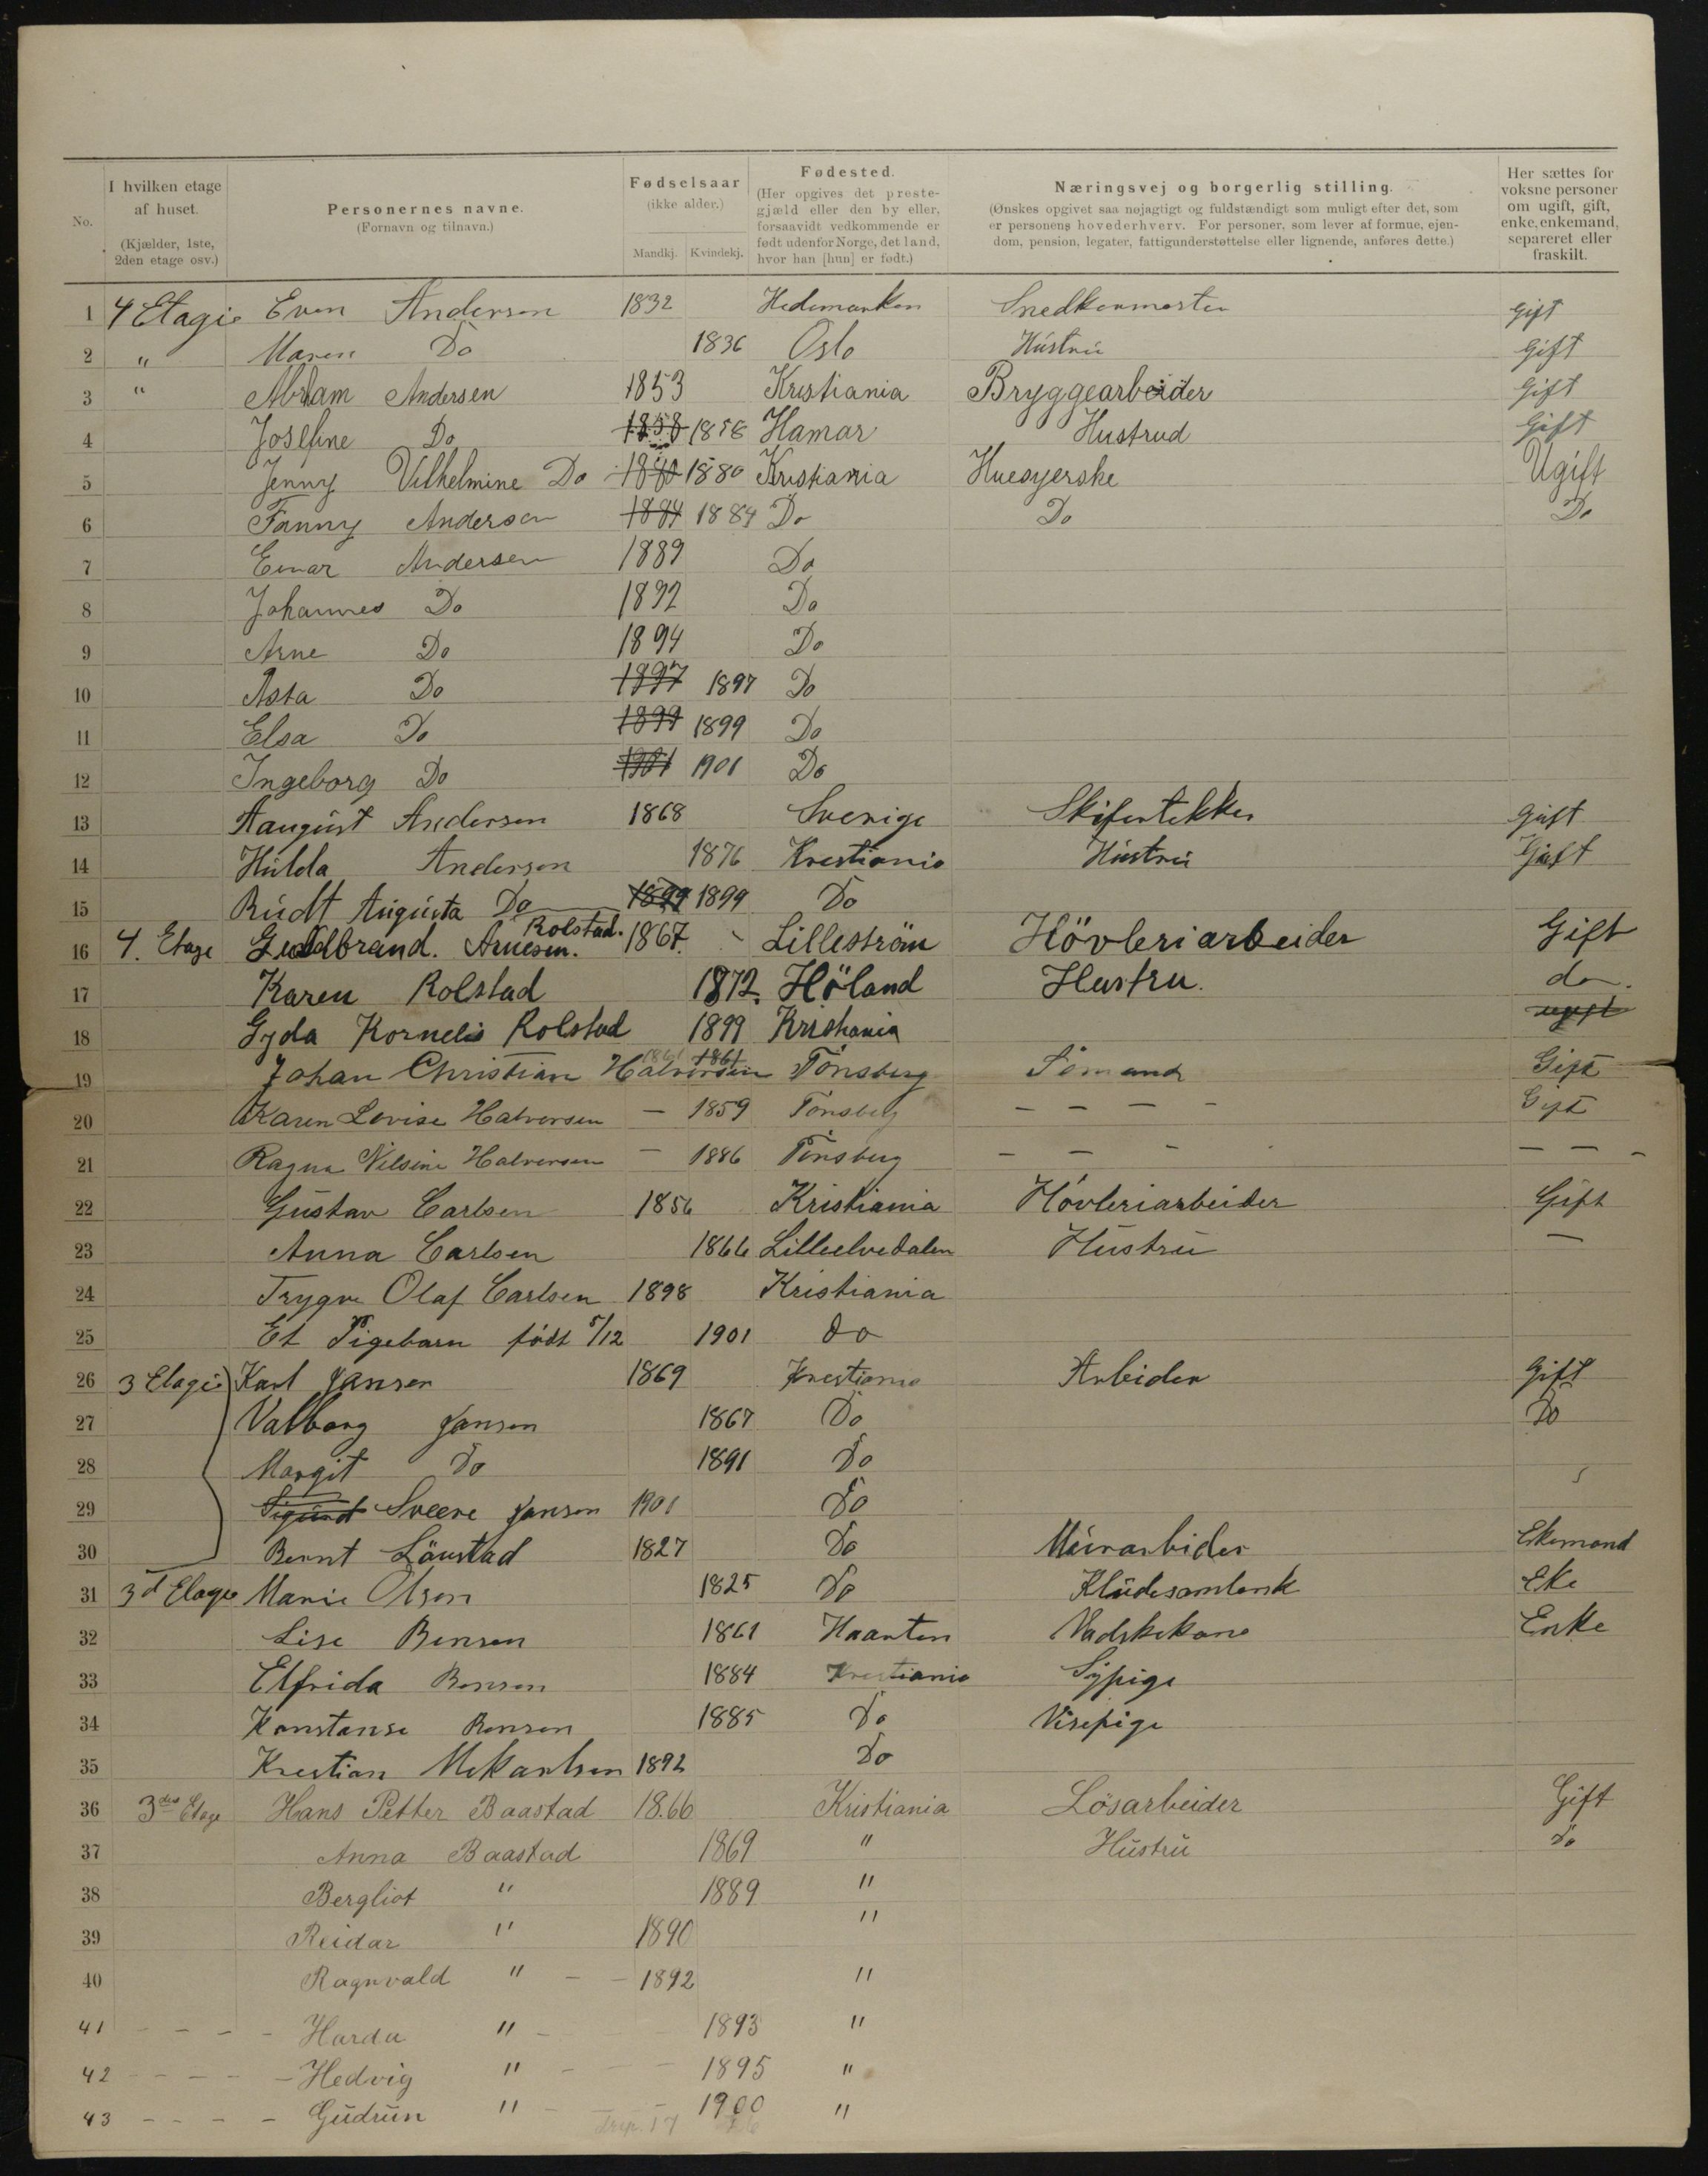 No.
I hvilken etage af huset. (Kjælder, 1ste, 2den etage osv.)
Personernes navne. (Fornavn og tilnavn.)
Fødselsaar (ikke alder.) Mandkj. Kvindekj.
Fødested. (Her opgives det prestegjæld eller den by eller, forsaavidt vedkommende er født udenfor Norge, det land, hvor han [hun] er født.)
Næringsvej og borgerlig stilling. (Ønskes opgivet saa nøjagtigt og fuldstændigt som muligt efter det, som er personens hovederhverv. For personer, som lever af formue, ejendom, pension, legater, fattigunderstøttelse eller lignende, anføres dette.)
Her sættes for voksne personer om ugift, gift, enke, enkemand, separeret eller fraskilt.
1 4 Etagie Even Andersen 1832 Hedemarken Snedkermester Gift
2 " Maren Do 1836 Oslo Hustru Gift
3 " Abrham Andersen 1853 Kristiania Bryggearbeider Gift
4 Josefine Do 1858 1858 Hamar Hustrud Gift
5 Jenny Vilhelmine Do 1880 1880 Kristiania Huesyerske Ugift
6 Fanny Andersen 1884 1884 Do Do Do
7 Einar Andersen 1889 Do
8 Johannes Do 1892 Do
9 Arne Do 1894 Do
10 Asta Do 1897 1897 Do
11 Elsa Do 1899 1899 Do
12 Ingeborg Do 1901 1901 Do
13 Aaugust Andersen 1868 Sverige Skifertekker Gift
14 Hulda Andersen 1876 Krestiania Hustru Gift
15 Rudt Augusta Do 1899 1899 Do
16 4. Etage Guldbrand. Arnesen. Rolstad. 1867. Lilleström Hövleriarbeider Gift
17 Karen Rolstad 1872. Höland Hustru. do.
18 Gyda Kornelis Rolstad 1899 Kristiania ugift
19 Johan Christian Halvorsen 1861 1861 Tönsberg Sömand Gift
20 Karen Lovise Halvorsen — 1859 Tönsberg — — — — Gift
21 Ragna Nilsine Halvorsen — 1886 Tönsberg — — — — — —
22 Gustav Carlsen 1856 Kristiania Hövleriarbeider Gift
23 Anna Carlsen 1866 Lilleelvedalen Hustru —
24 Trygve Olaf Carlsen 1898 Kristiania
25 Et Pigebarn födt 5/12 1901 do
26 3 Etagie Karl Jansen 1869 Krestiania Arbeider Gift
27 Valborg Jansen 1867 Do Do
28 Margit Do 1891 Do
29 Sigurd Sverre Jansen 1901 Do
30 Bernt Länstad 1827 Do Murarbider Ekemand
31 3d Etagie Marie Olsen 1825 Do Kludesamlersk Eke
32 Lise Bensen 1861 Haarten Vadskekone Enke
33 Elfrida Bensen 1884 Krestiania Sypige
34 Konstanse Bensen 1885 Do Visepige
35 Krestian Mikarlsen 1892 Do
36 3die Etage Hans Petter Baastad 18.66 Kristiania Lösarbeider Gift
37 Anna Baastad 1869 " Hustru Do
38 Bergliot " 1889 "
39 Reidar " 1890 "
40 Ragnvald " — — 1892 "
41 — — — — Harda " — 1893 "
42 — — — — Hedvig " — — — 1895 "
43 — — — — Gudrun " — — — 1900 "